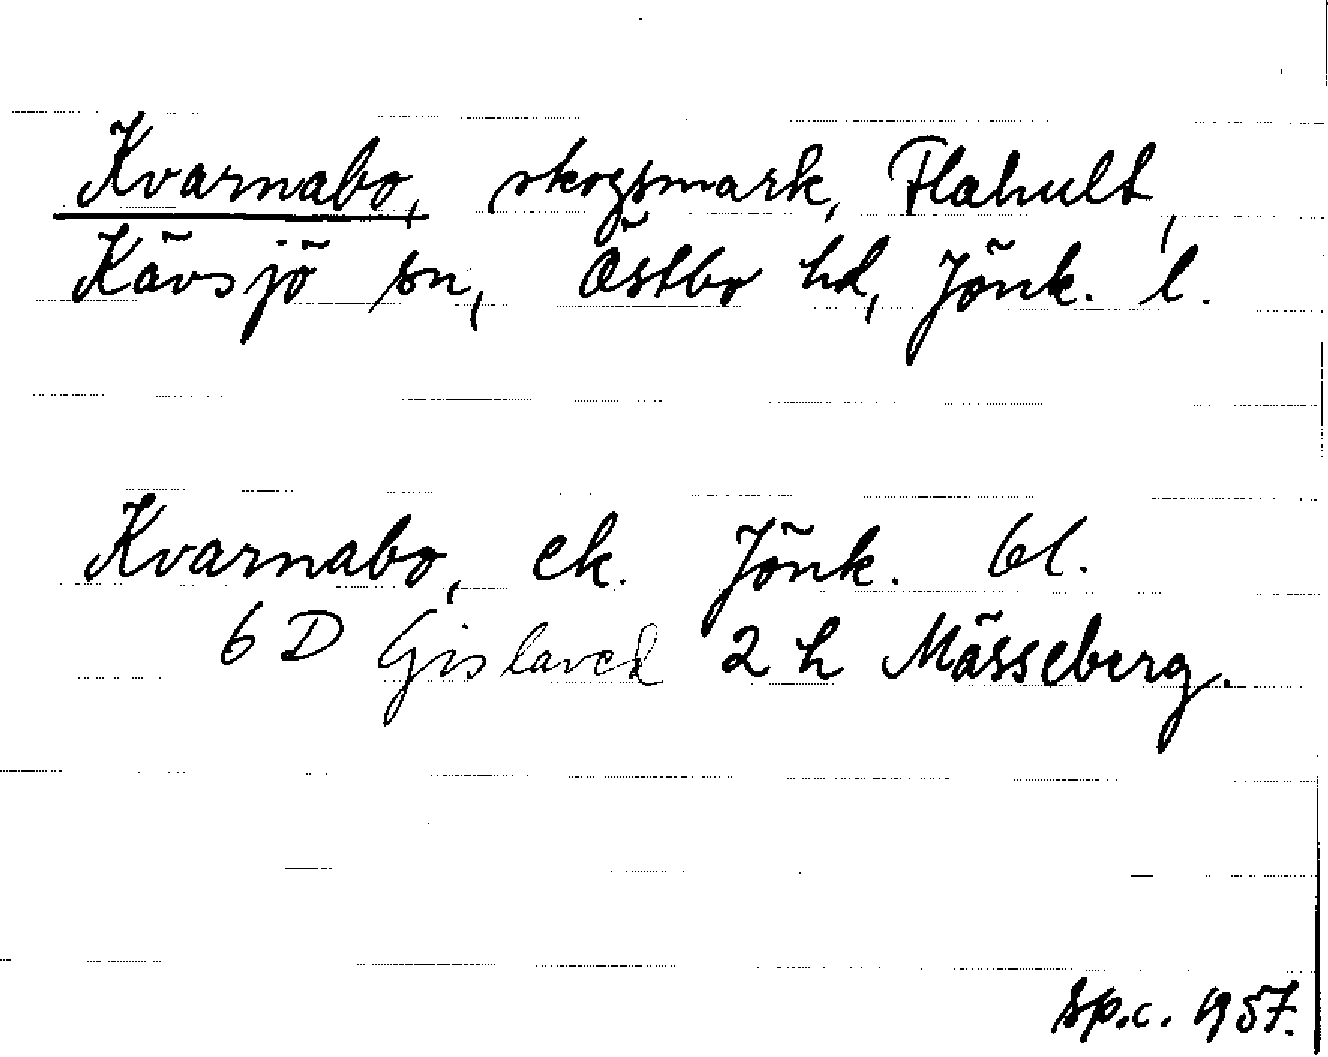 Kvarnabo, skogsmark, Flahult,
Kävsjö sn, Östbo hd, Jönk. l.
Kvarnabo, ek. Jönk. bl.
6 D Gislaved 2 h Mässeberg.
Sp.c. 1957.